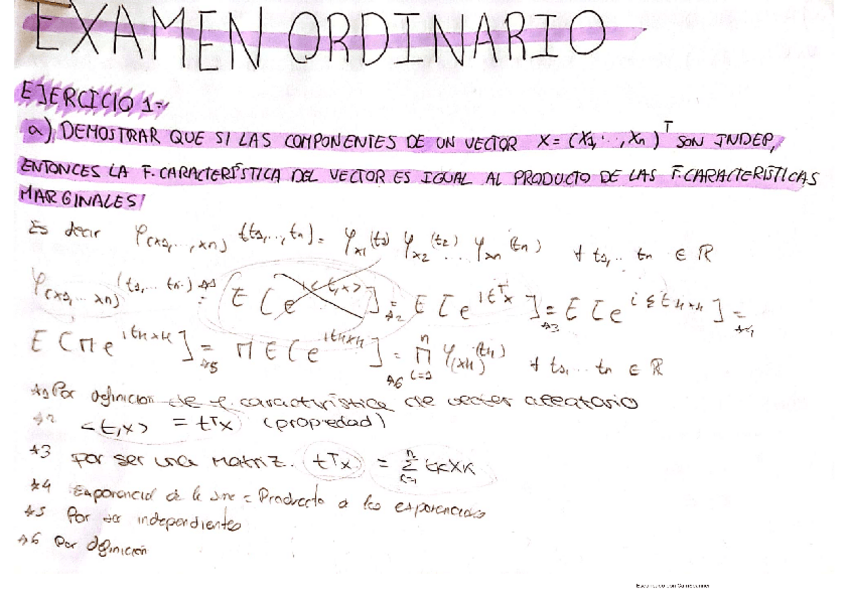 EXAMEN ORDINARIO
EJERCICIO 1=
a) DEMOSTRAR QUE SI LAS COMPONENTES DE UN VECTOR X = (X1, ..., Xn)^T SON INDEP,
ENTONCES LA F. CARACTERÍSTICA DEL VECTOR ES IGUAL AL PRODUCTO DE LAS F. CARACTERÍSTICAS
MARGINALES!
Es decir φ(x1,...,xn) (t1,...,tn) = φx1(t1) φx2(t2) ... φxn(tn) ∀ t1,.. tn ∈ R
φ(x1...xn) (t1,... tn) =*1 E[e^i<t,x>] =*2 E[e^it^Tx] =*3 E[e^i Σ tkxk] =*4
E[Π e^itkxk] =*5 Π E[e^itkxk] =*6 Π φ(xk)(tk) ∀ t1,... tn ∈ R
*1 Por definición de f. característica de vector aleatorio
*2 <t,x> = t^Tx (propiedad)
*3 por ser una matriz. t^Tx = Σ tkxk
*4 Exponencial de la = Producto de las exponenciales
*5 Por ser independientes
*6 Por definición